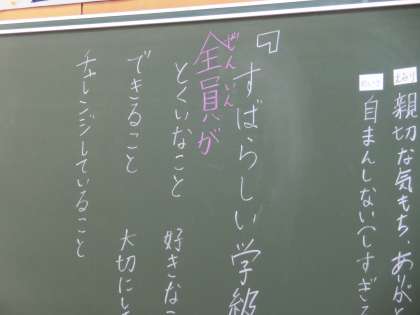 親切な気もち、ありがと
自まんしない(しすぎる
『すばらしい学級
ぜんいん
全員が
とくいなこと 好きなこ
できること 大切にし
チャレンジしていること